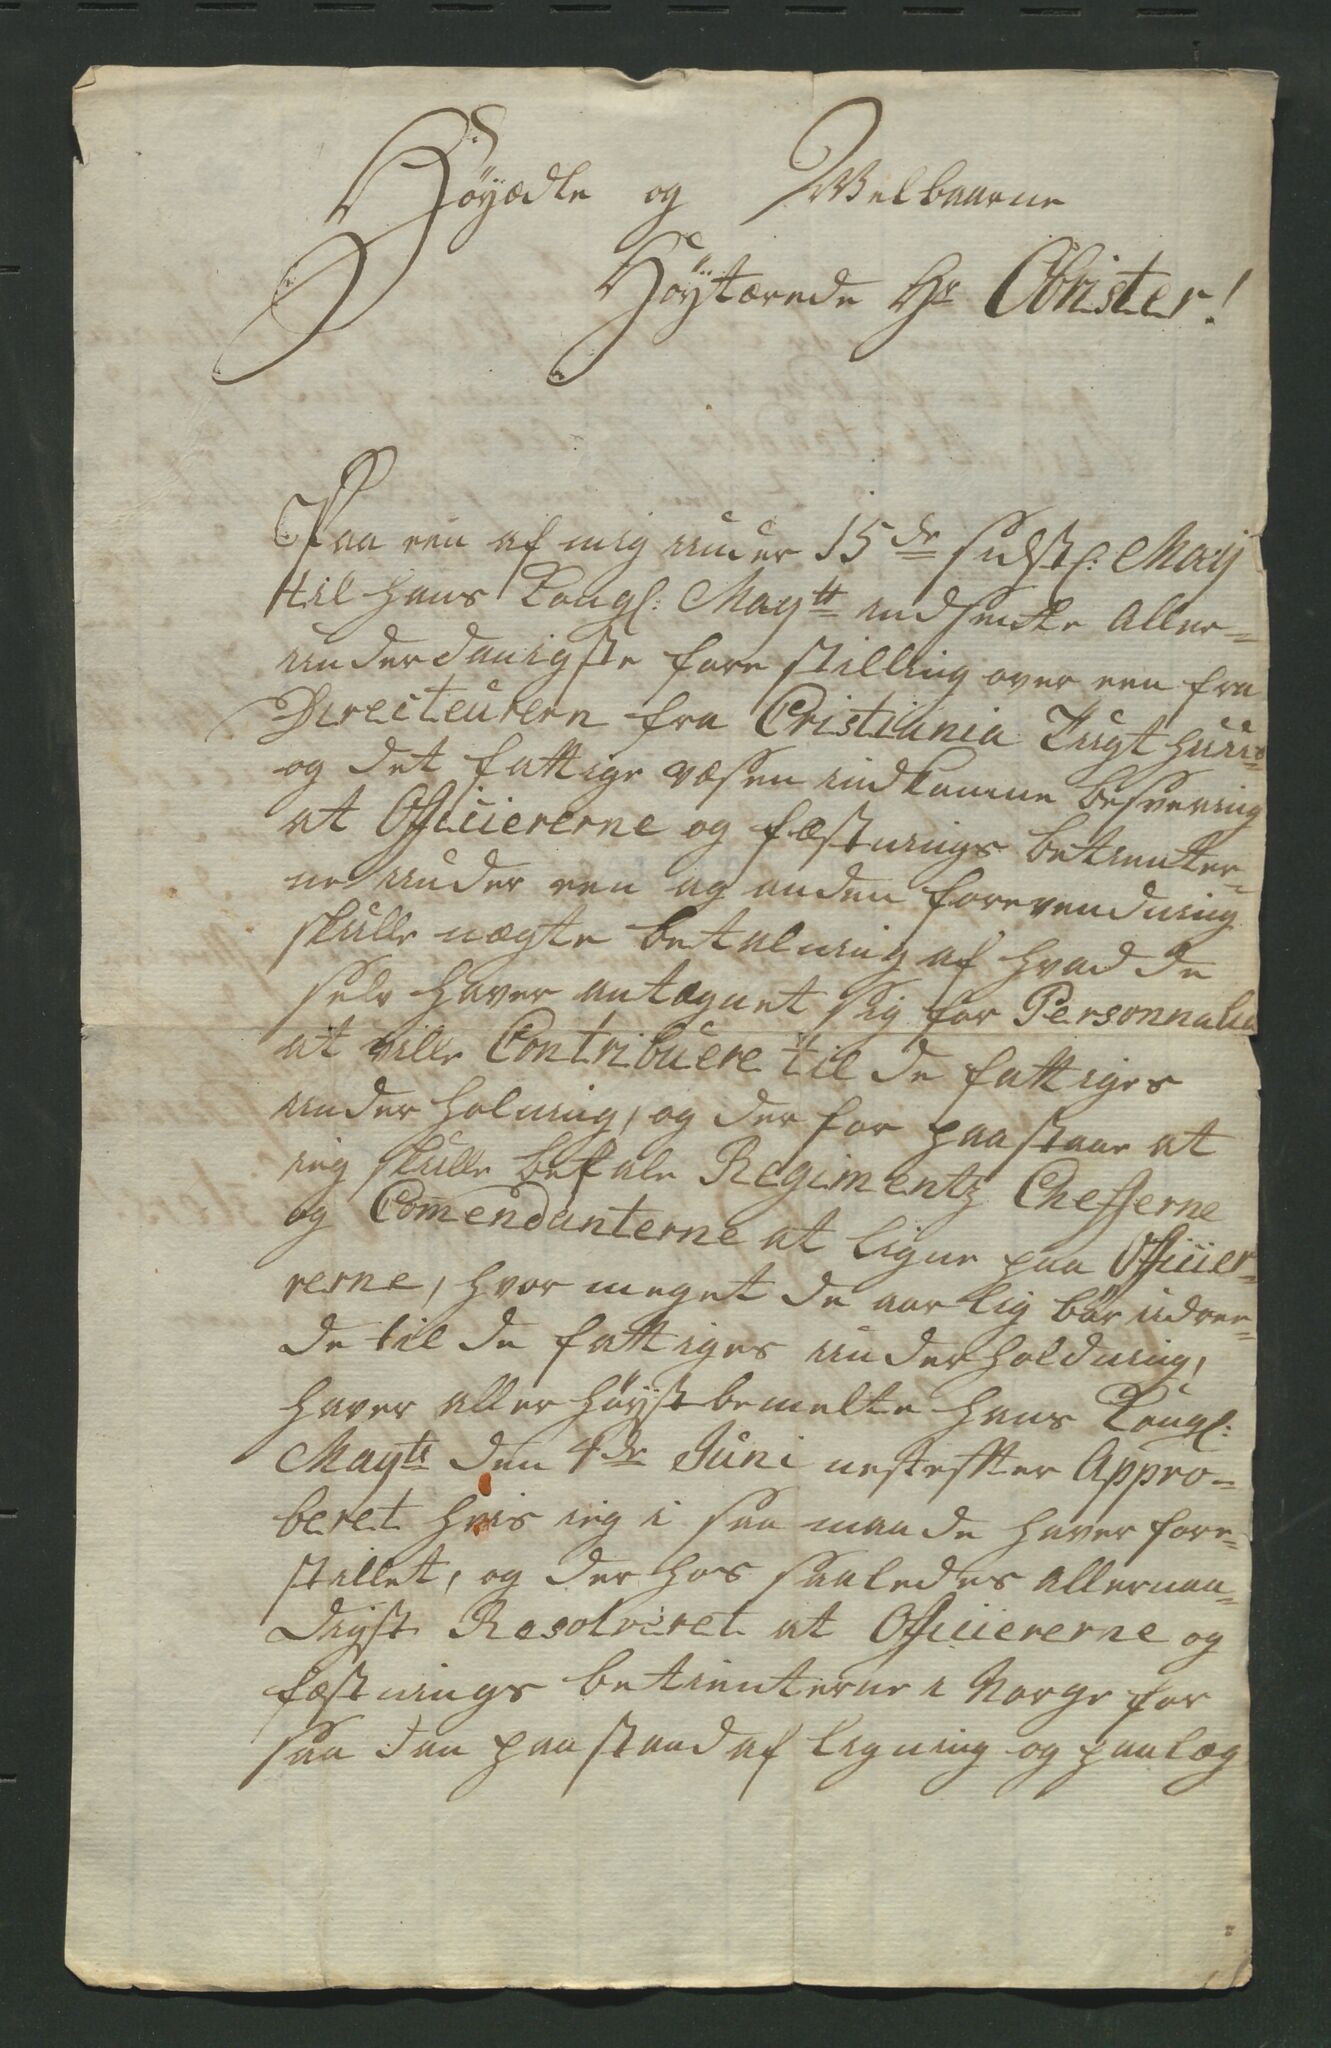 Höyædle og Welbaarne
Höytærede Hr Obrister!
Paa een af mig under 15de sidstl: Maij
til hans Kongl: Maytt indsendte Aller=
underdanigste forestilling over een fra
Directeurern fra Cristiania Tugthuus
og det fattige væsen indkomne besvering
at Officiererne og fæstnings betienter=
ne under een og anden forevendning
skulle nægte betalning af hvad de
selv haver antægnet sig for Personnalia
at ville Contribuere til de fattiges
underholning, og derfor paastaar at
ieg skulle befale Regimentz Chefferne
og Com̅endanterne at ligne paa Officier=
rerne, hvor meget de aarlig bör udree=
de til de fattiges underholdning,
haver aller höyst bemelte hans Kongl:
Maytt den 4de Juni nesteffter Appro=
beret hvis ieg i saa maade haver fore=
stillet, og der hos saaledes allernaa=
digst Resolveret at Officiererne og
fæstnings betienterne i Norge for
saadan paastand af ligning og paalæg